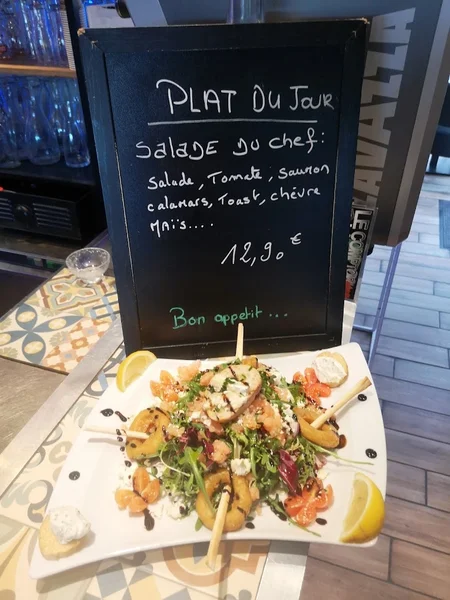 PLAT DU JOUR
SALADE DU CHEF :
Salade, Tomate, saumon
calamars, Toast, chèvre
Maïs....
12,90 €
Bon appetit ...
LAVAZZA